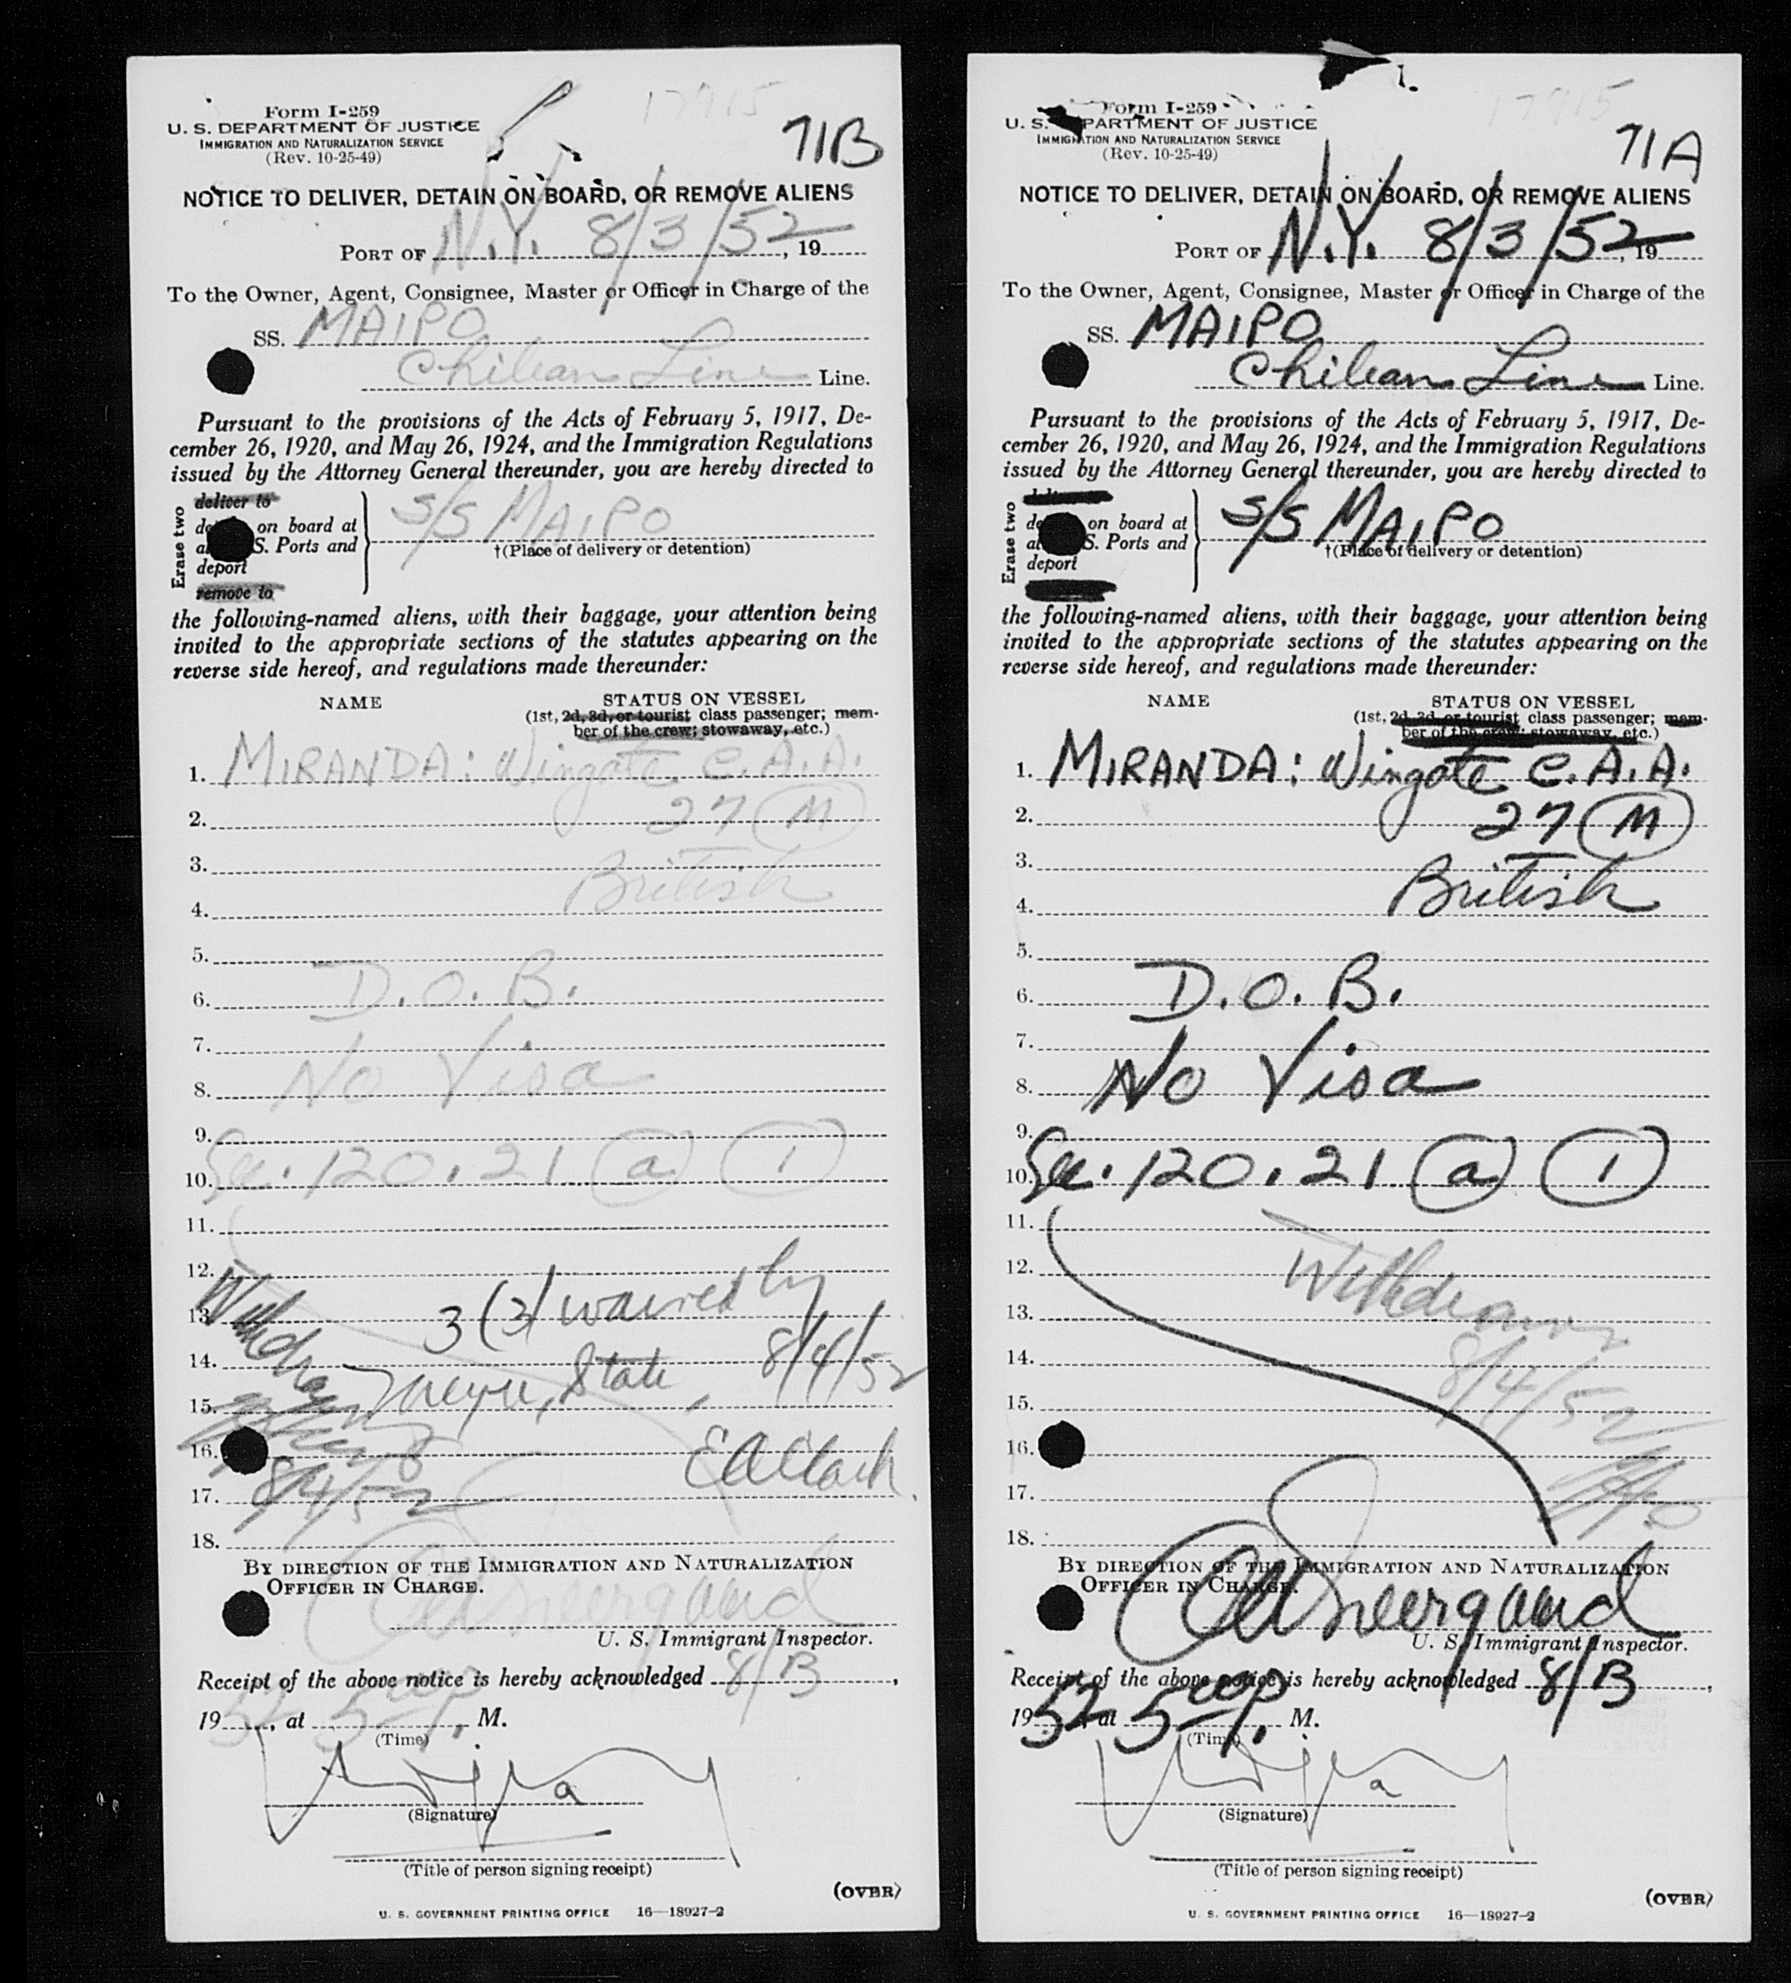 17915
Form I-259
U. S. DEPARTMENT OF JUSTICE
IMMIGRATION AND NATURALIZATION SERVICE
(Rev. 10-25-49)
71B
NOTICE TO DELIVER, DETAIN ON BOARD, OR REMOVE ALIENS
PORT OF N.Y. 8/3/52, 19
To the Owner, Agent, Consignee, Master or Officer in Charge of the
SS. MAIPO
Chilean Line Line.
Pursuant to the provisions of the Acts of February 5, 1917, De-
cember 26, 1920, and May 26, 1924, and the Immigration Regulations
issued by the Attorney General thereunder, you are hereby directed to
Erase two
deliver to
on board at
S. Ports and
deport
remove to
S/S MAIPO
†(Place of delivery or detention)
the following-named aliens, with their baggage, your attention being
invited to the appropriate sections of the statutes appearing on the
reverse side hereof, and regulations made thereunder:
NAME
STATUS ON VESSEL
(1st, 2d, 3d, or tourist class passenger; mem-
ber of the crew; stowaway, etc.)
1. MIRANDA: Wingate C.A.A.
2. 27 (M)
3.
4. British
5.
6. D.O.B.
7.
8. No Visa
9.
10. Sec. 120.21 (a) (1)
11.
12.
13. Withdrawn 3(3) waived by
14. State, 8/4/52
15.
16.
17. 8/4/52 E A Clark
18.
BY DIRECTION OF THE IMMIGRATION AND NATURALIZATION
OFFICER IN CHARGE.
U. S. Immigrant Inspector.
Receipt of the above notice is hereby acknowledged 8/3,
1952, at 5 00 P. M.
(Time)
(Signature)
(Title of person signing receipt)
(OVER)
U. S. GOVERNMENT PRINTING OFFICE 16—18927-2
17915
Form I-259
U. S. DEPARTMENT OF JUSTICE
IMMIGRATION AND NATURALIZATION SERVICE
(Rev. 10-25-49)
71A
NOTICE TO DELIVER, DETAIN ON BOARD, OR REMOVE ALIENS
PORT OF N.Y. 8/3/52, 19
To the Owner, Agent, Consignee, Master or Officer in Charge of the
SS. MAIPO
Chilean Line Line.
Pursuant to the provisions of the Acts of February 5, 1917, De-
cember 26, 1920, and May 26, 1924, and the Immigration Regulations
issued by the Attorney General thereunder, you are hereby directed to
Erase two
on board at
S. Ports and
deport
S/S MAIPO
†(Place of delivery or detention)
the following-named aliens, with their baggage, your attention being
invited to the appropriate sections of the statutes appearing on the
reverse side hereof, and regulations made thereunder:
NAME
STATUS ON VESSEL
(1st, 2d, 3d, or tourist class passenger; mem-
ber of the crew; stowaway, etc.)
1. MIRANDA: Wingate C.A.A.
2. 27 (M)
3.
4. British
5.
6. D.O.B.
7.
8. No Visa
9.
10. Sec. 120.21 (a) (1)
11.
12. Withdrawn
13.
14. 8/4/52
15.
16.
17.
18.
BY DIRECTION OF THE IMMIGRATION AND NATURALIZATION
OFFICER IN CHARGE.
U. S. Immigrant Inspector.
Receipt of the above notice is hereby acknowledged 8/3,
1952, at 5 00 P. M.
(Time)
(Signature)
(Title of person signing receipt)
(OVER)
U. S. GOVERNMENT PRINTING OFFICE 16—18927-2